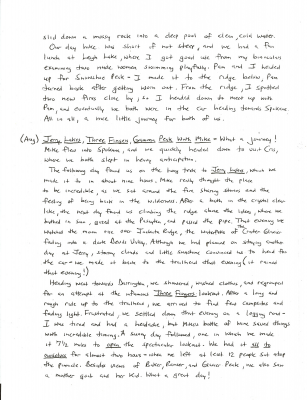 slid down a mossy rock into a deep pool of clean, cold water.
Our day hike was short if not steep, and we had a fun
lunch at Leigh Lake, where I got good use from my binoculars
examining two nude women swimming playfully. Pam and I headed
up for Snowshoe Peak - I made it to the ridge below, Pam
turned back after getting worn out. From the ridge, I spotted
two new fires close by! I headed down to meet up with
Pam, and eventually we both were in the car heading towards Spokane.
All in all, a nice little journey for both of us.
(Aug) Jerry Lakes, Three Fingers, Common Peak With Mike - What a journey!
Mike flew into Spokane, and we quickly headed down to visit Cris,
where we both slept in heavy anticipation.
The following day found us on the long trek to Jerry Lakes, which we
made it to in about nine hours. Mike really thought the place
to be incredible, as we sat around the fire sharing stories and the
feeling of being back in the wilderness. After a bath in the crystal clear
lake, the next day found us climbing the ridge above the lake, where we
bathed in sun, gazed at the Paysayten, and passed the pipe. That evening we
watched the moon rise over Jackita Ridge, the watchtower of the Crater Glacier
fading into a dark Devils Valley. Although we had planned on staying another
day at Jerry, stormy clouds and little sunshine convinced us to head for
the car - we made it back to the trailhead that evening (it rained
that evening!)
Heading west towards Darrington, we showered, washed clothes, and regrouped
for an attempt at the infamous Three Fingers lookout. After a long and
rough ride up to the trailhead, we arrived to find few campsites and
fading light. Frustrated, we settled down that evening on a logging road -
I was tired and had a headache, but Mikes bottle of wine saved things
with incredible timing. A sunny day followed, one in which we made
it 7½ miles to the spectacular lookout. We had it all to
ourselves for almost three hours - when we left at least 12 people sat atop
the pinnacle. Besides scenes of Baker, Rainier, and Glacier Peak, we also saw
a mother goat and her kid. What a great day!